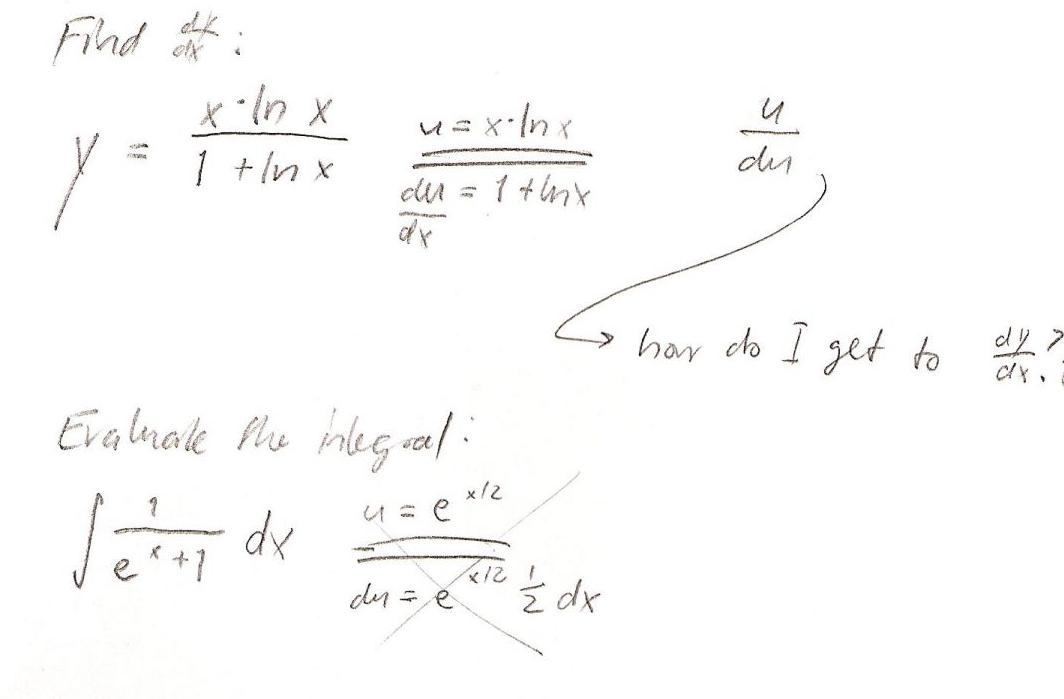 Find dy/dx :
y = x·ln x / 1 + ln x   u = x·ln x   u/du
du/dx = 1 + ln x
how do I get to dy/dx ?
Evaluate the integral :
∫ 1/(e^x+1) dx   u = e^x/2
du = e^x/2 1/2 dx